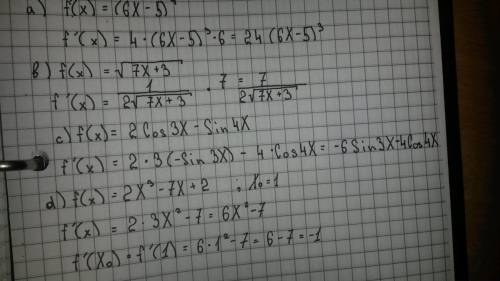 a) f(x) = (6X-5)
f'(x) = 4·(6X-5)³·6 = 24(6X-5)³
b) f(x) = √7X+3
f'(x) = 1/2√7X+3 · 7 = 7/2√7X+3
c) f(x) = 2Cos3X - Sin4X
f'(x) = 2·3(-Sin3X) - 4·Cos4X = -6Sin3X-4Cos4X
d) f(x) = 2X³-7X+2 ; X₀=1
f'(x) = 2·3X²-7 = 6X²-7
f'(X₀) = f'(1) = 6·1²-7 = 6-7 = -1